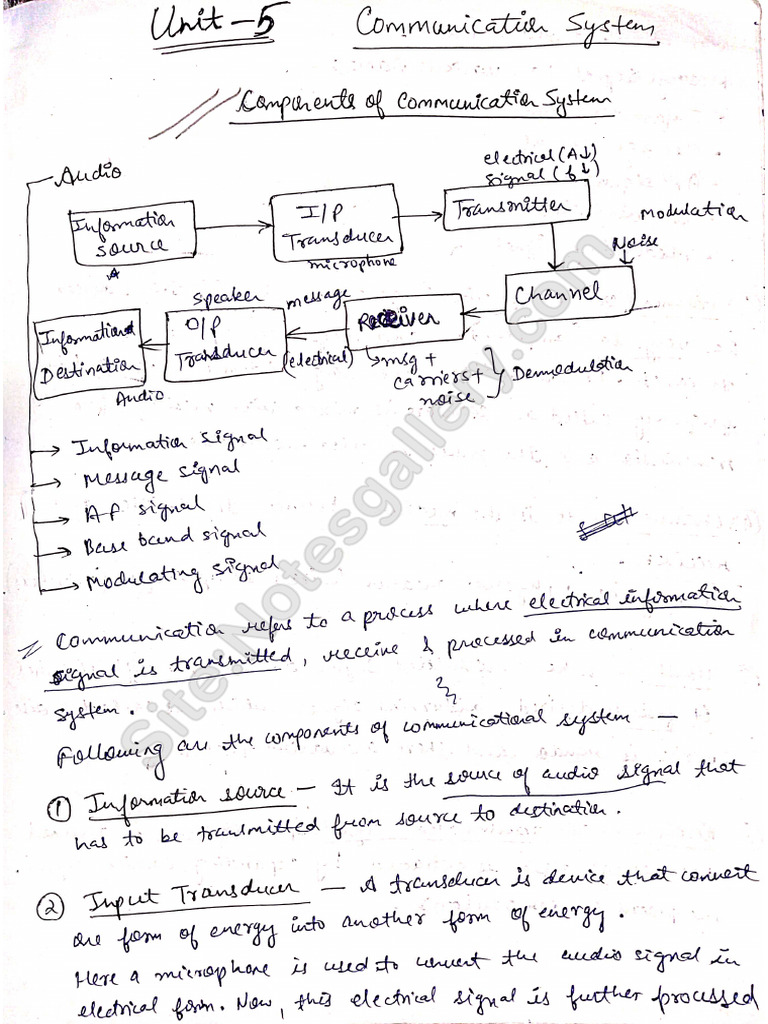 Unit - 5 Communication System
Components of Communication System
Audio
electrical (A↓)
signal (f↓)
Information
source
A
I/P
Transducer
microphone
Transmitter
Modulation
Noise
Channel
Receiver
→ msg +
carriers +
noise
Demodulation
message
(electrical)
speaker
O/P
Transducer
Information
Destination
Audio
→ Information signal
→ Message signal
→ AF signal
→ Base band signal
→ Modulating signal
Communication refers to a process where electrical information
signal is transmitted, receive & processed in communication
system.
Following are the components of communicational system —
① Information source - It is the source of audio signal that
has to be transmitted from source to destination.
② Input Transducer - A transducer is device that convert
one form of energy into another form of energy.
Here a microphone is used to convert the audio signal in
electrical form. Now, this electrical signal is further processed
Site:Notesgallery.com